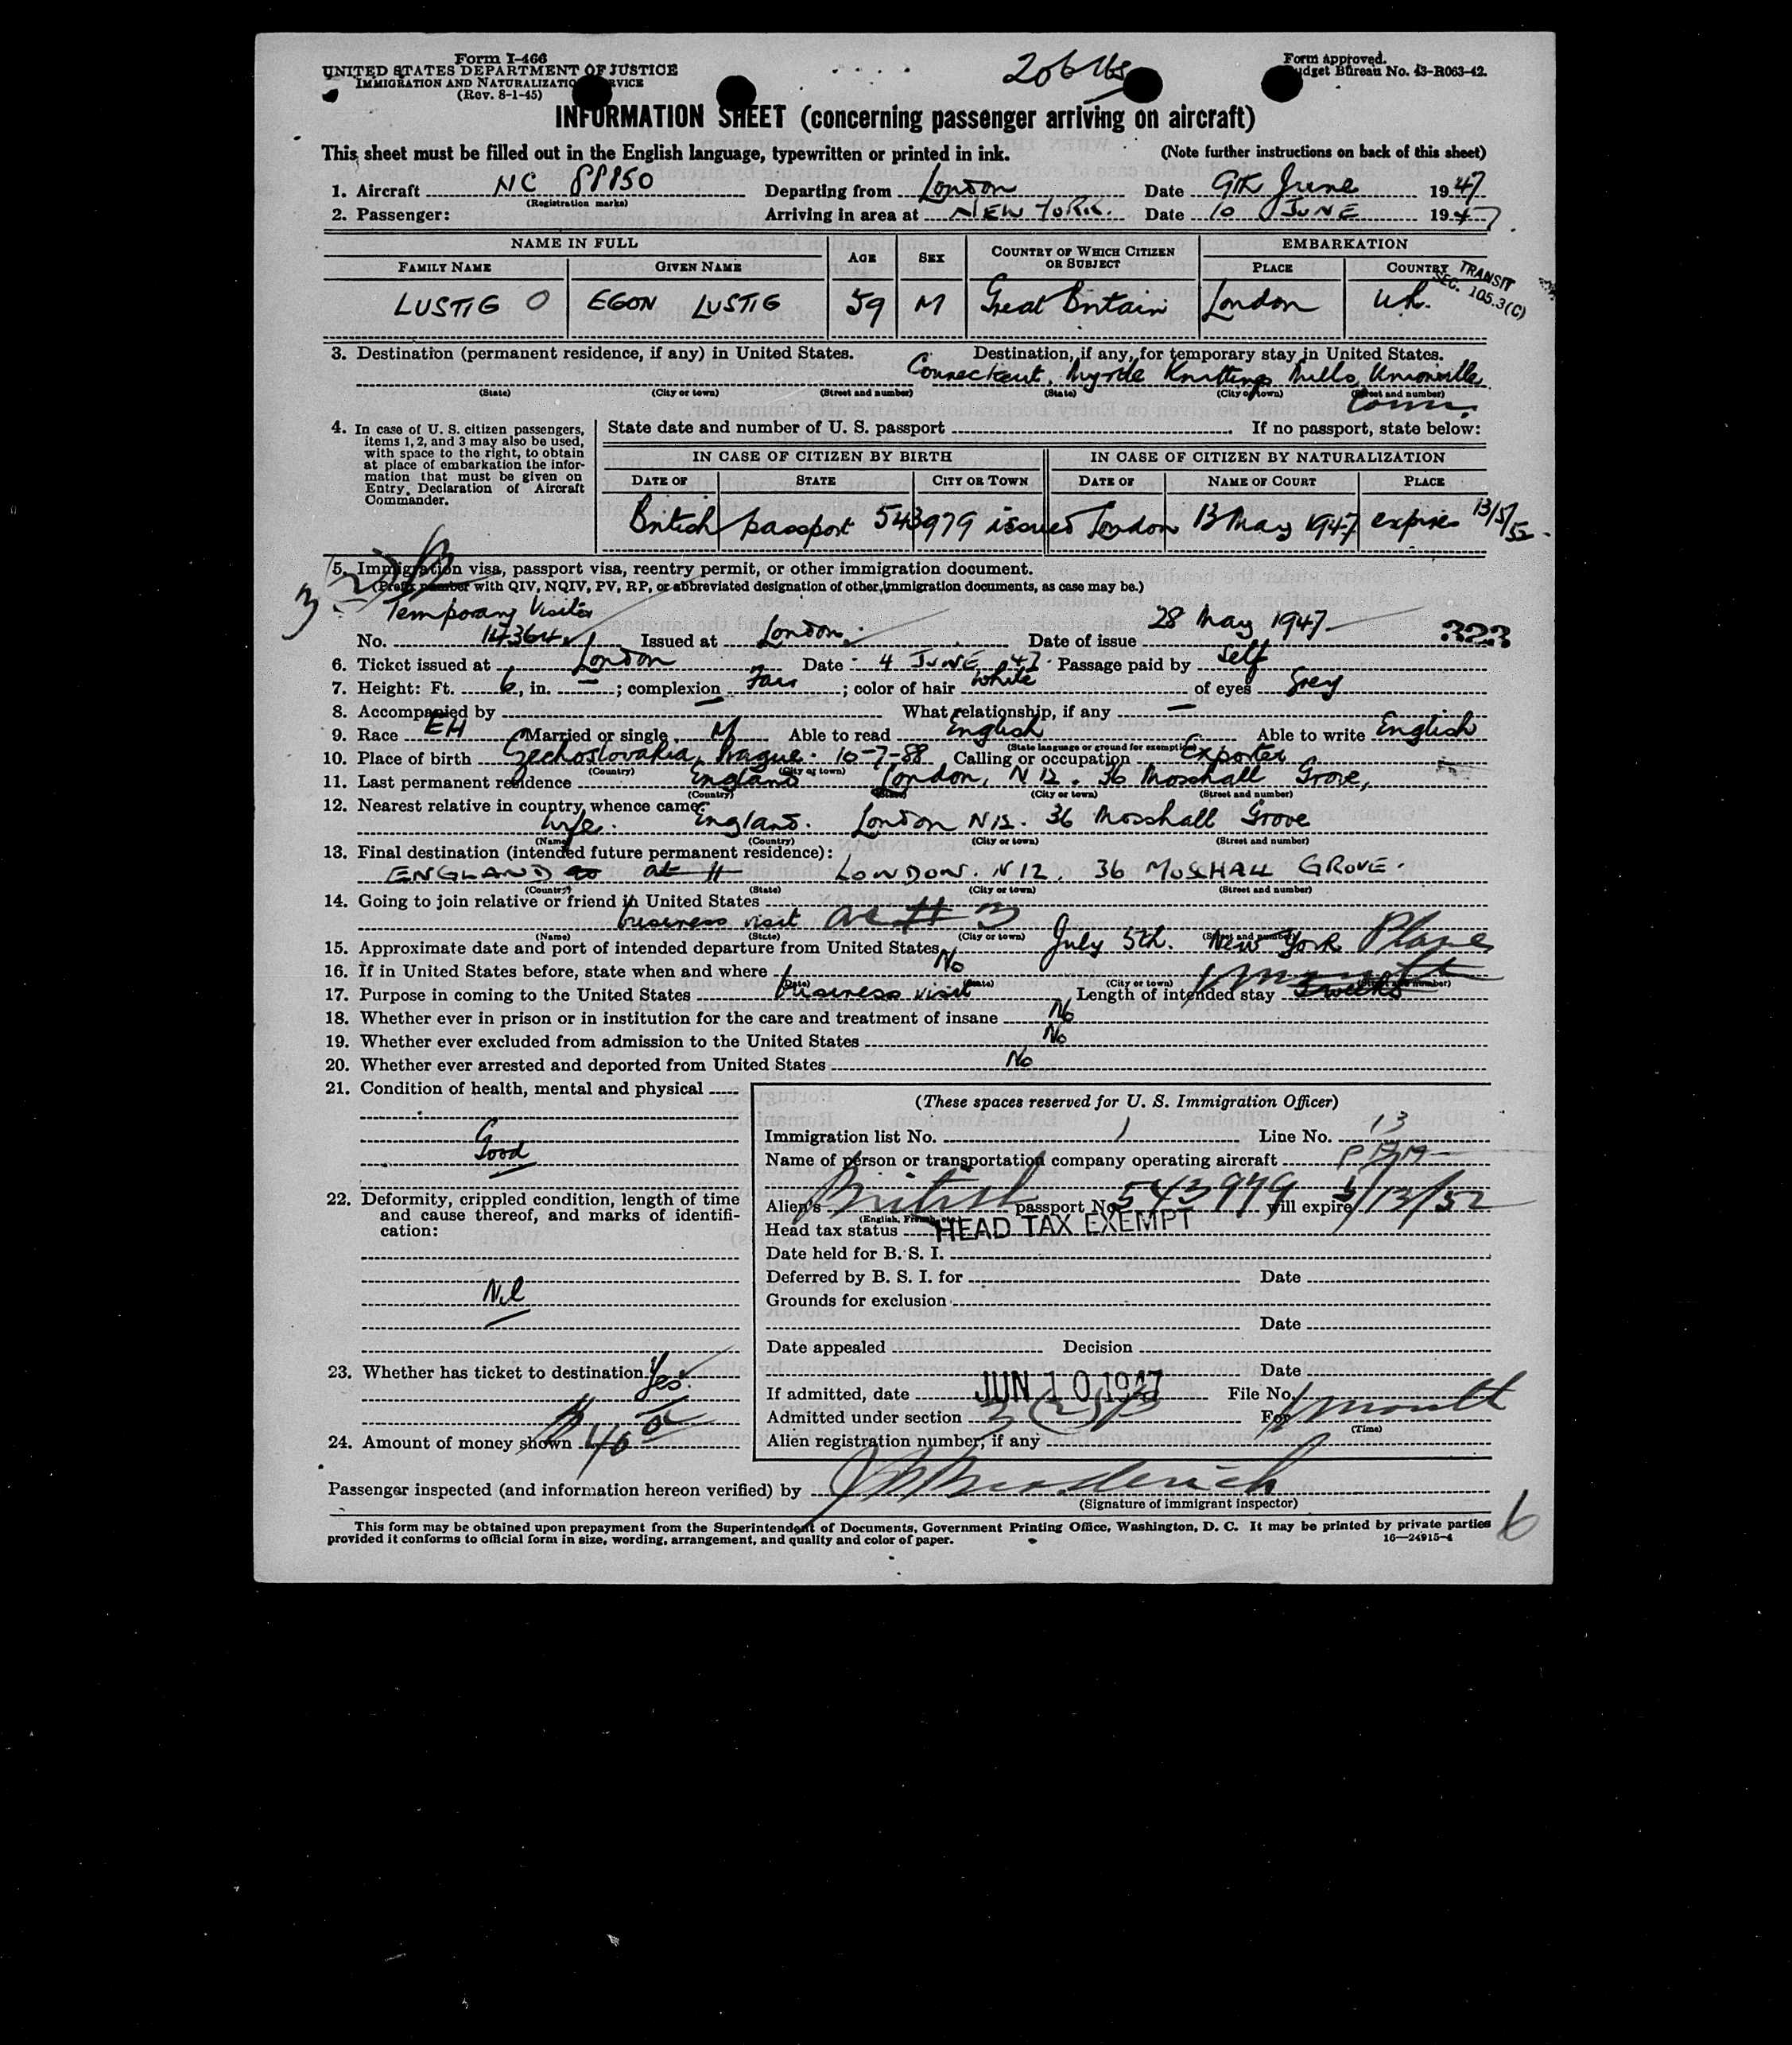 Form I-466
UNITED STATES DEPARTMENT OF JUSTICE
IMMIGRATION AND NATURALIZATION SERVICE
(Rev. 8-1-45)
206 lbs
Form Approved.
Budget Bureau No. 43-R063-42.
INFORMATION SHEET (concerning passenger arriving on aircraft)
This sheet must be filled out in the English language, typewritten or printed in ink. (Note further instructions on back of this sheet)
1. Aircraft NC 88850 Departing from London Date 9th June 1947
(Registration marks)
2. Passenger: Arriving in area at NEW YORK. Date 10 JUNE 1947
NAME IN FULL AGE SEX COUNTRY OF WHICH CITIZEN OR SUBJECT EMBARKATION
FAMILY NAME GIVEN NAME PLACE COUNTRY
TRANSIT
SEC. 105.3(C)
LUSTIG O EGON LUSTIG 59 M Great Britain London U.K.
3. Destination (permanent residence, if any) in United States. Destination, if any, for temporary stay in United States.
Connecticut, Myrtle Knitting Mills, Unionville
(State) (City or town) (Street and number) (State) (City or town) (Street and number)
Conn.
4. In case of U. S. citizen passengers, items 1, 2, and 3 may also be used, with space to the right, to obtain at place of embarkation the information that must be given on Entry Declaration of Aircraft Commander.
State date and number of U. S. passport If no passport, state below:
IN CASE OF CITIZEN BY BIRTH IN CASE OF CITIZEN BY NATURALIZATION
DATE OF STATE CITY OR TOWN DATE OF NAME OF COURT PLACE
British passport 543979 issued London 13 May 1947 expires 13/5/52.
5. Immigration visa, passport visa, reentry permit, or other immigration document.
(Prefix number with QIV, NQIV, PV, RP, or abbreviated designation of other immigration documents, as case may be.)
Temporary Visitor
No. 14364 Issued at London. Date of issue 28 May 1947
323
6. Ticket issued at London Date 4 JUNE 47. Passage paid by self
7. Height: Ft. 6, in. —; complexion Fair; color of hair White of eyes Grey
8. Accompanied by — What relationship, if any —
9. Race EH Married or single M Able to read English Able to write English
(State language or ground for exemption)
10. Place of birth Czechoslovakia, Prague. 10-7-88 Calling or occupation Exporter
(Country) (City or town)
11. Last permanent residence England London, N12. 36 Mosshall Grove,
(Country) (State) (City or town) (Street and number)
12. Nearest relative in country whence came:
Wife. England. London N12. 36 Mosshall Grove
(Name) (Country) (City or town) (Street and number)
13. Final destination (intended future permanent residence):
ENGLAND LONDON. N12. 36 MOSSHALL GROVE.
(Country) (State) (City or town) (Street and number)
14. Going to join relative or friend in United States
business visit at # 3
(Name) (State) (City or town) (Street and number)
15. Approximate date and port of intended departure from United States July 5th. New York Plane
16. If in United States before, state when and where No
(Date) (State) (City or town) (Street and number)
17. Purpose in coming to the United States business visit Length of intended stay 1 month
18. Whether ever in prison or in institution for the care and treatment of insane No
19. Whether ever excluded from admission to the United States No
20. Whether ever arrested and deported from United States No
21. Condition of health, mental and physical
Good
22. Deformity, crippled condition, length of time and cause thereof, and marks of identification:
Nil
23. Whether has ticket to destination Yes.
24. Amount of money shown
(These spaces reserved for U. S. Immigration Officer)
Immigration list No. 1 Line No. 13
Name of person or transportation company operating aircraft
Alien's British passport No. 543979 will expire 5/13/52
(English, French, etc.)
Head tax status HEAD TAX EXEMPT
Date held for B. S. I.
Deferred by B. S. I. for Date
Grounds for exclusion
Date
Date appealed Decision
Date
If admitted, date JUN 10 1947 File No.
Admitted under section 3(2) For 1 month
(Time)
Alien registration number, if any
Passenger inspected (and information hereon verified) by
(Signature of immigrant inspector)
This form may be obtained upon prepayment from the Superintendent of Documents, Government Printing Office, Washington, D. C. It may be printed by private parties
provided it conforms to official form in size, wording, arrangement, and quality and color of paper. 16—24915-4
6